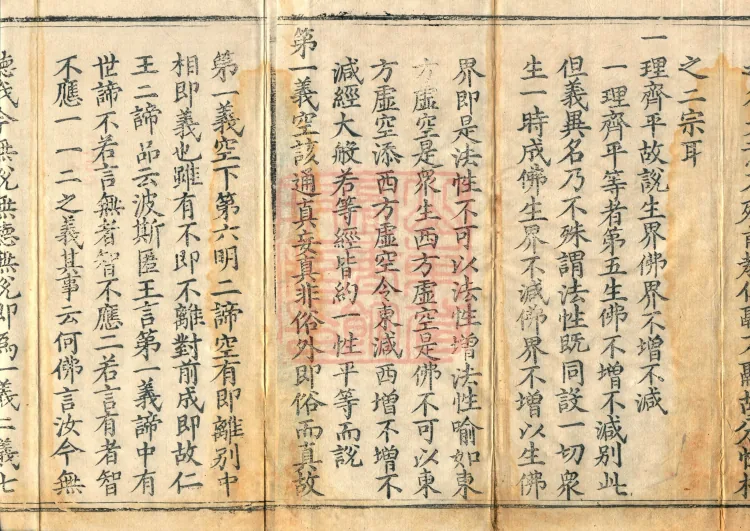 之二宗耳
一理齊平故說生界佛界不增不減
一理齊平等者第五生佛不增不減別此
但義異名乃不殊謂法性既同設一切衆
生一時成佛生界不減佛界不增以生佛
界即是法性不可以法性增法性喻如東
方虛空是衆生西方虛空是佛不可以東
方虛空添西方虛空令東減西增不增不
減經大般若等經皆約一性平等而說
第一義空該通真妄真非俗外即俗而真故
第一義空下第六明二諦空有即離別中
相即義也雖有不即不離對前成即故仁
王二諦品云波斯匿王言第一義諦中有
世諦不若言無者智不應二若言有者智
不應一一二之義其事云何佛言汝今無
聽我今無說無聽無說即爲一義二義七